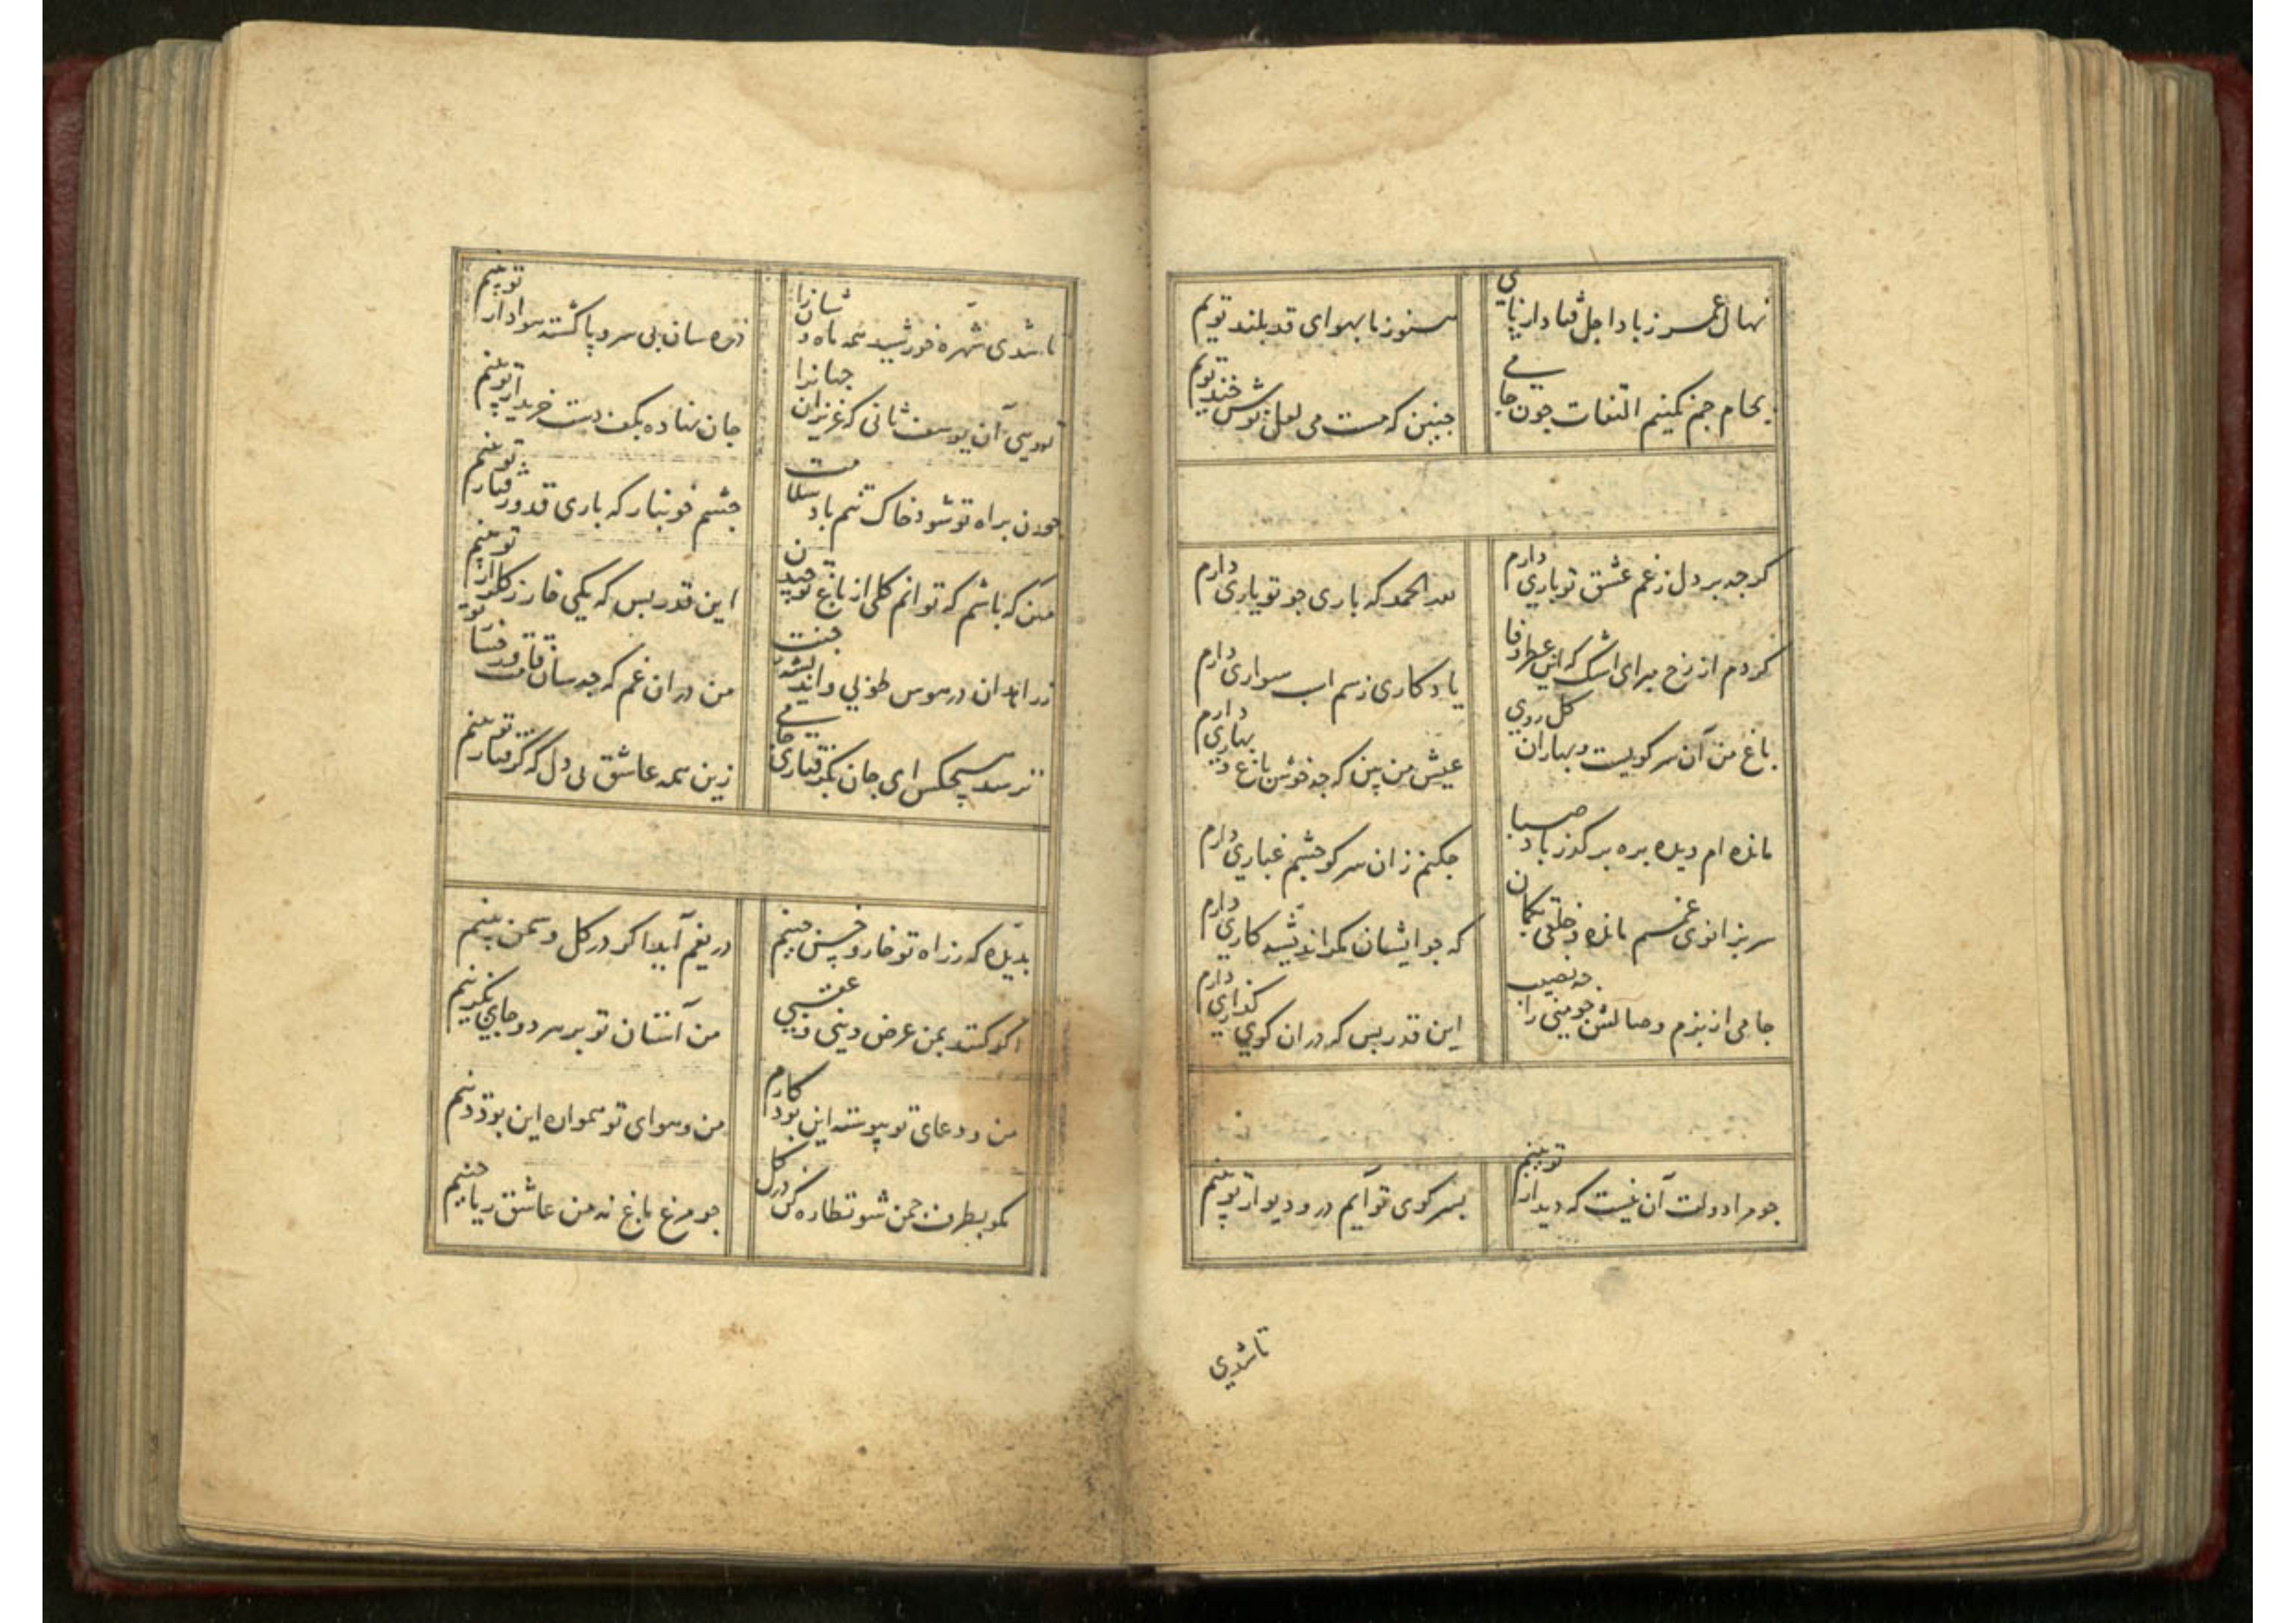 نهال عمر ز باد اجل فتاد از پای
هنوز ما بهوای قد بلند توییم
بجام جم نکنیم التفات چون جامی
چنین که مست می لعل نوش خند توییم
کرچه بر دل ز غم عشق تو باری دارم
لله الحمد که باری چو تو یاری دارم
کردم از رخ مبر ای اشک که این عطر وفا
یادکاری ز سم اسب سواری دارم
باغ من آن سر کویست و بهاران کل روی
عیش من بین که چه خوش باغ و بهاری دارم
مانده ام دیده بره بر کذر باد صبا
چکنم زان سر کو چشم غباری دارم
سر بزانوی غم مانده و خلقی بکمان
که چو ایشان مکر اندیشه کاری دارم
جامی از بزم وصالش چو منی را چه نصیب
این قدر بس که در ان کوی کذاری دارم
چو مرا دولت آن نیست که دیدار تو بینم
بسر کوی تو آیم در و دیوار تو بینم
تا شدی
تا شدی شهره خورشید همه ماه وشانرا
ذره سان بی سر و پا کشته هوادار تو بینم
تویی آن یوسف ثانی که عزیزان جهانرا
جان نهاده بکف دست خریدار تو بینم
چون براه تو شود خاک تنم باد سلامت
چشم خونبار که باری قد و رفتار تو بینم
من که باشم که توانم کلی از باغ تو چیدن
این قدر بس که یکی خار ز کلزار تو بینم
زاهدان در هوس طوبی و اندیشه جنت
من در ان غم که چه سان قامت و رخسار تو
نرسد هیچکس ای جان بکرفتاری جامی
زین همه عاشق بی دل که کرفتار تو بینم
بدیده که ز راه تو خار و خس چینم
دریغم آید اکر در کل و سمن بینم
اکر کنند بمن عرض دینی و عقبی
من آستان تو بر هر دو جای بکزینم
من و دعای تو پیوسته این بود کارم
من و هوای تو همواره این بود دینم
مکو بطرف چمن شو نظاره کن در کل
چو مرغ باغ نه من عاشق ریاحینم